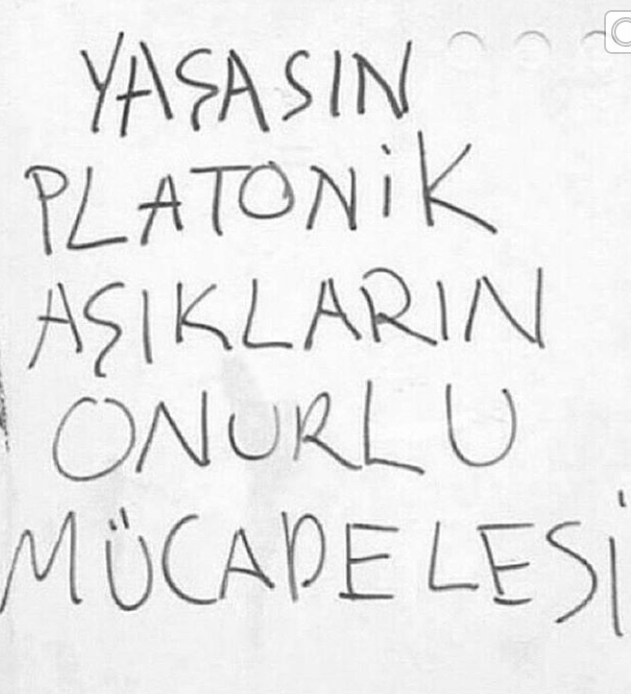 YAŞASIN
PLATONİK
AŞIKLARIN
ONURLU
MÜCADELESİ